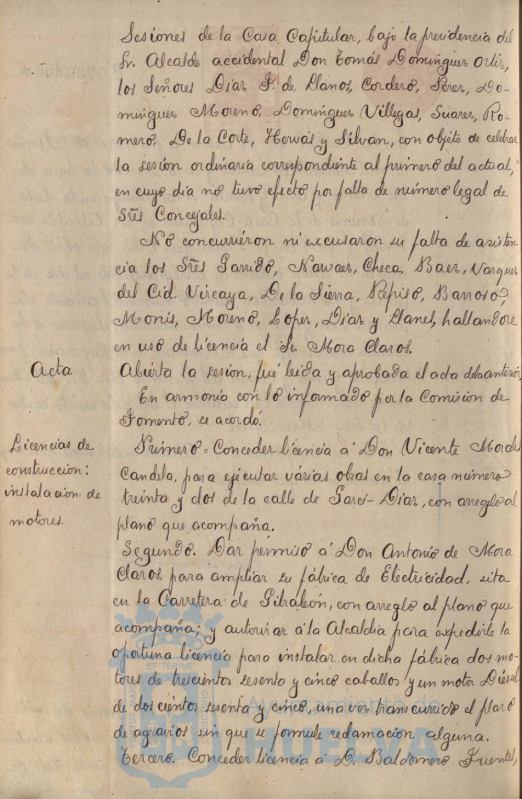 Sesiones de la Casa Capitular, bajo la presidencia del
Sr. Alcalde accidental Don Tomás Domínguez Ortiz,
los Señores Díaz F. de Llanos, Cordero, Pérez, Do-
mínguez Moreno, Domínguez Villegas, Suarez, Ro-
mero, De la Corte, Hervás y Silvan, con objeto de celebrar
la sesión ordinaria correspondiente al primero del actual,
en cuyo dia no tuvo efecto por falta de número legal de
Sres Concejales.
No concurrieron ni excusaron su falta de asisten-
cia los Sres Garrido, Narvaez, Checa, Baez, Vazquez
del Cid, Vizcaya, De la Sierra, Repiso, Barroso,
Monis, Moreno, Lopez, Diaz y Llanes, hallandose
en uso de licencia el Sr. Mora Claros.
Acta
Abierta la sesión, fué leida y aprobada el acta de la anterior
En armonia con lo informado por la Comision de
Fomento, se acordó.
Licencias de
construccion:
instalacion de
motores.
Primero = Conceder licencia á Don Vicente Morales
Candela, para ejecutar várias obras en la casa número
treinta y dos de la calle de Garci-Diaz, con arreglo al
plano que acompaña.
Segundo. Dar permiso á Don Antonio de Mora
Claros para ampliar su fábrica de Electricidad, sita
en la Carretera de Gibraleón, con arreglo al plano que
acompaña; y autorizar á la Alcaldia para expedirle la
oportuna licencia para instalar en dicha fábrica dos mo-
tores de trescientos sesenta y cinco caballos y un motor Diésel
de dos cientos sesenta y cinco, una vez transcurrido el plazo
de agravios sin que se formule reclamacion alguna.
Tercero. Conceder licencia á D. Baldomero Fuentes,
HUELVA